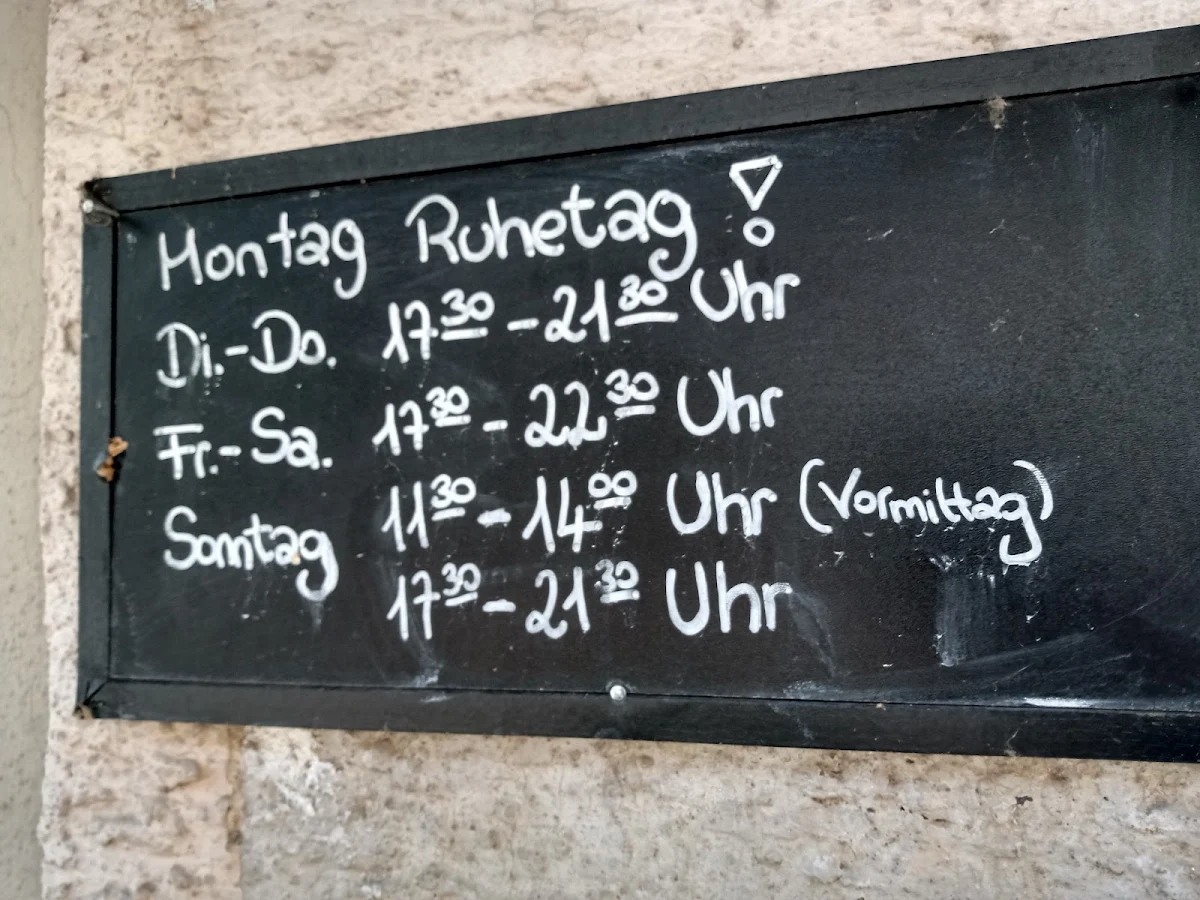 Montag Ruhetag!
Di.-Do. 17³⁰ - 21³⁰ Uhr
Fr.-Sa. 17³⁰ - 22³⁰ Uhr
Sonntag 11³⁰ - 14⁰⁰ Uhr (Vormittag)
17³⁰ - 21³⁰ Uhr